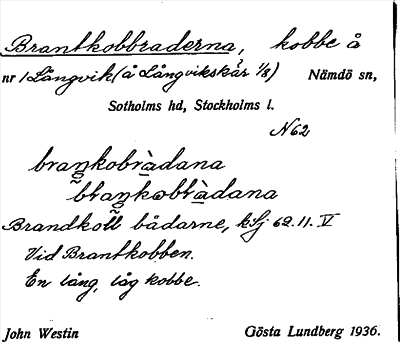 Brantkobbraderna, kobbe å
nr 1 Långvik (å Långvikskär 1/8) Nämdö sn,
Sotholms hd, Stockholms l.
N62
braŋkobràdana
braŋkobràdana
Brandkoll bådarne, kSj 62.11.V
Vid Brantkobben.
En lång, låg kobbe.
John Westin Gösta Lundberg 1936.